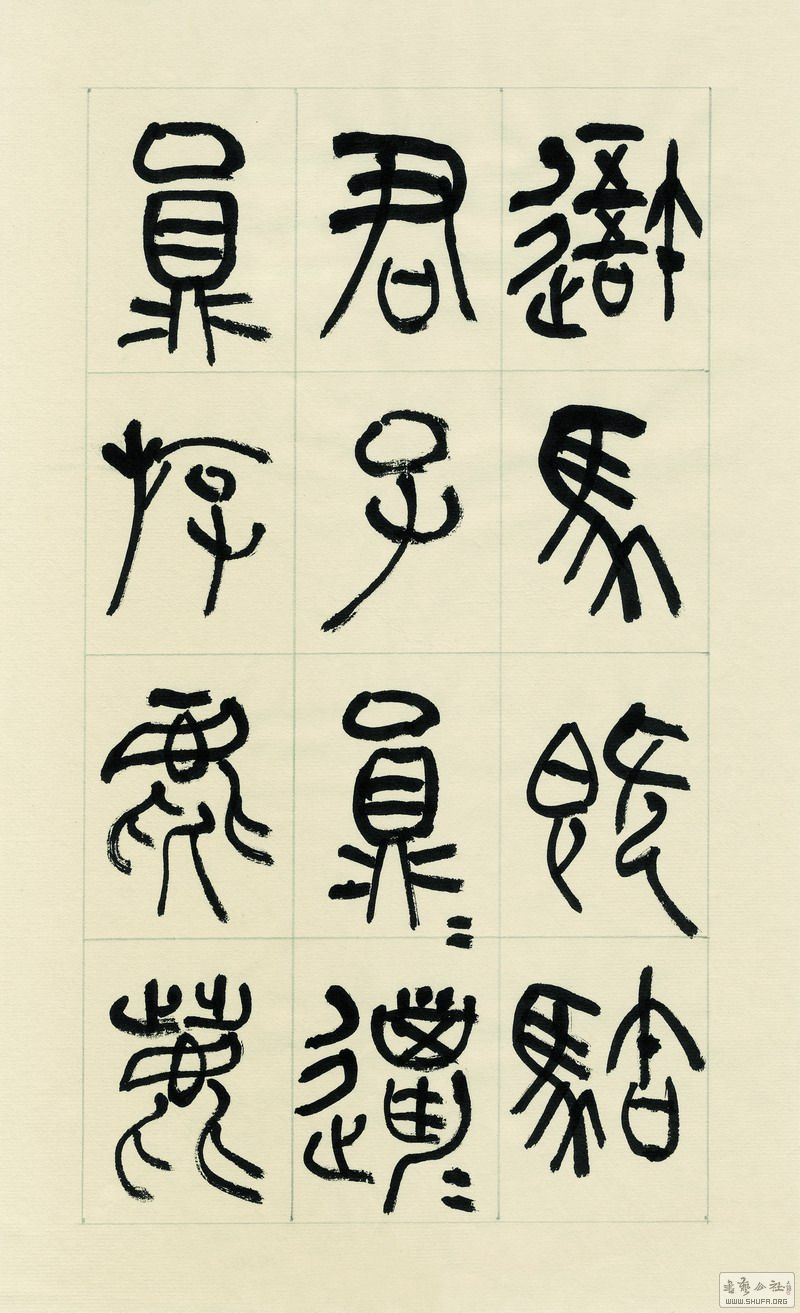 吾馬既
君子員=邋=
員斿麀鹿
书艺公社
WWW.SHUFA.ORG